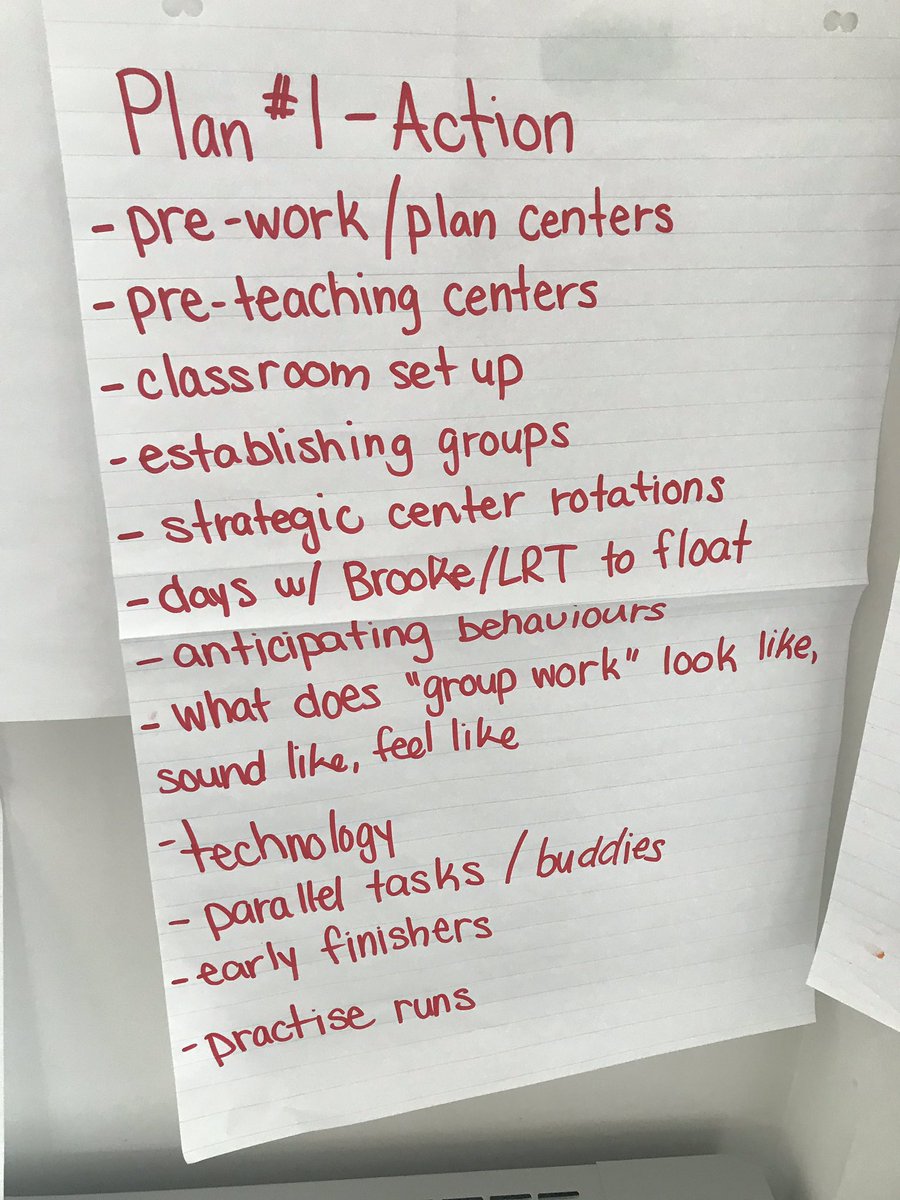 Plan #1 - Action
- pre-work/plan centers
- pre-teaching centers
- classroom set up
- establishing groups
- strategic center rotations
- days w/ Brooke/LRT to float
- anticipating behaviours
- what does "group work" look like,
sound like, feel like
- technology
- parallel tasks / buddies
- early finishers
- practise runs